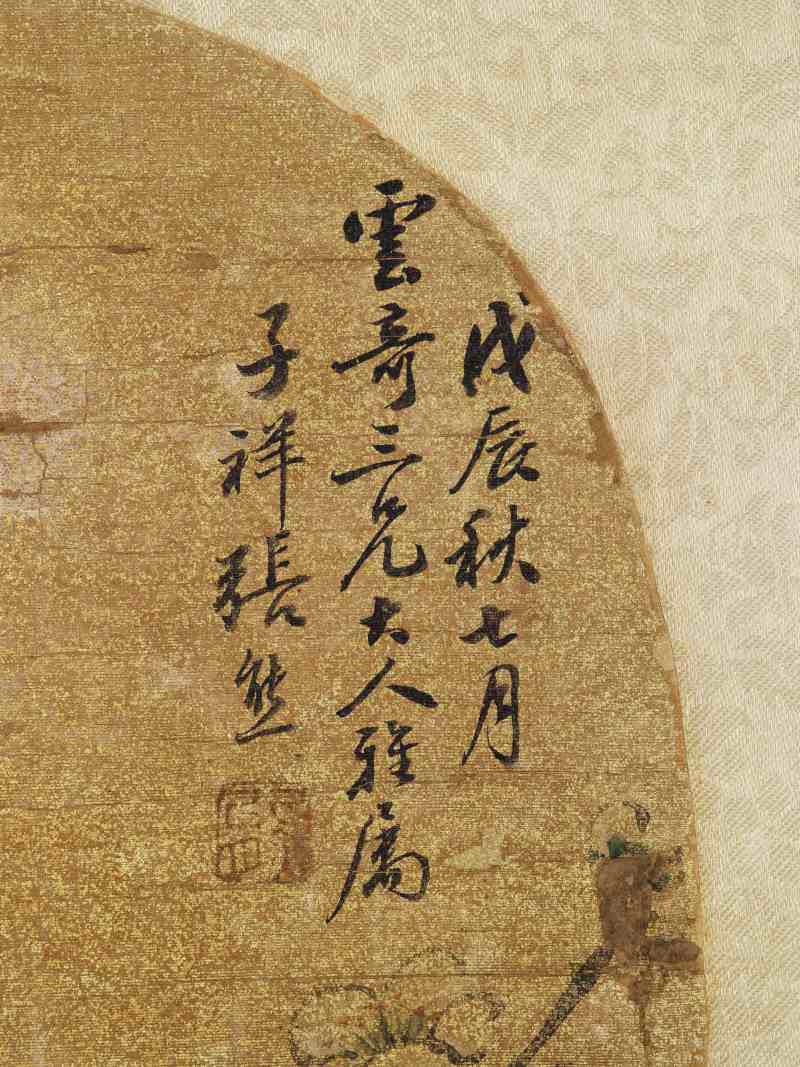 戊辰秋七月
雲奇三兄大人雅属
子祥張熊